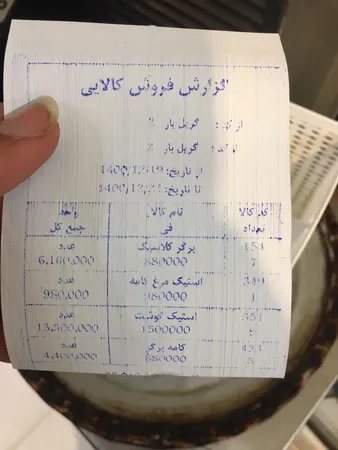 گزارش فروش کالایی
از کد: گریل بار 2
تا کد: گریل بار 2
از تاریخ: 1400/12/19
تا تاریخ: 1400/12/
کد کالا نام کالا واحد
تعداد فی جمع کل
154 برگر کلاسیک عدد
7 880000 6,160,000
349 استیک مرغ کامه عدد
1 980000 980,000
351 استیک گوشت عدد
1500000
کامه برگر عدد
5 880000 4,400,000